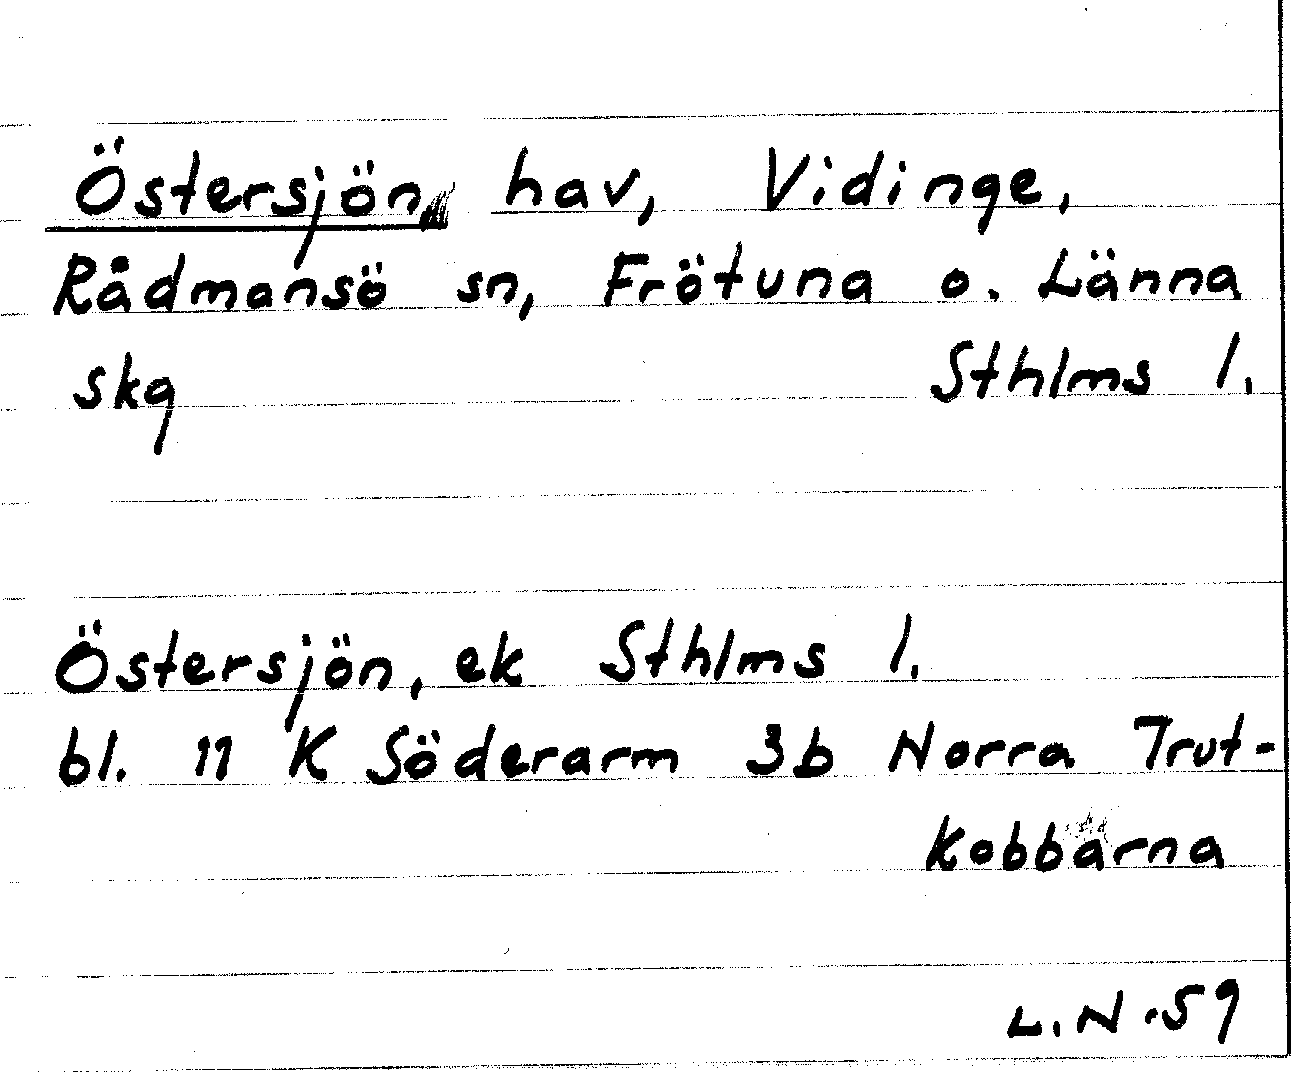 Östersjön, hav, Vidinge,
Rådmansö sn, Frötuna o. Länna
skg Sthlms l.
Östersjön, ek Sthlms l.
bl. 11 K Söderarm 3b Norra Trut-
kobbarna
L.N.59